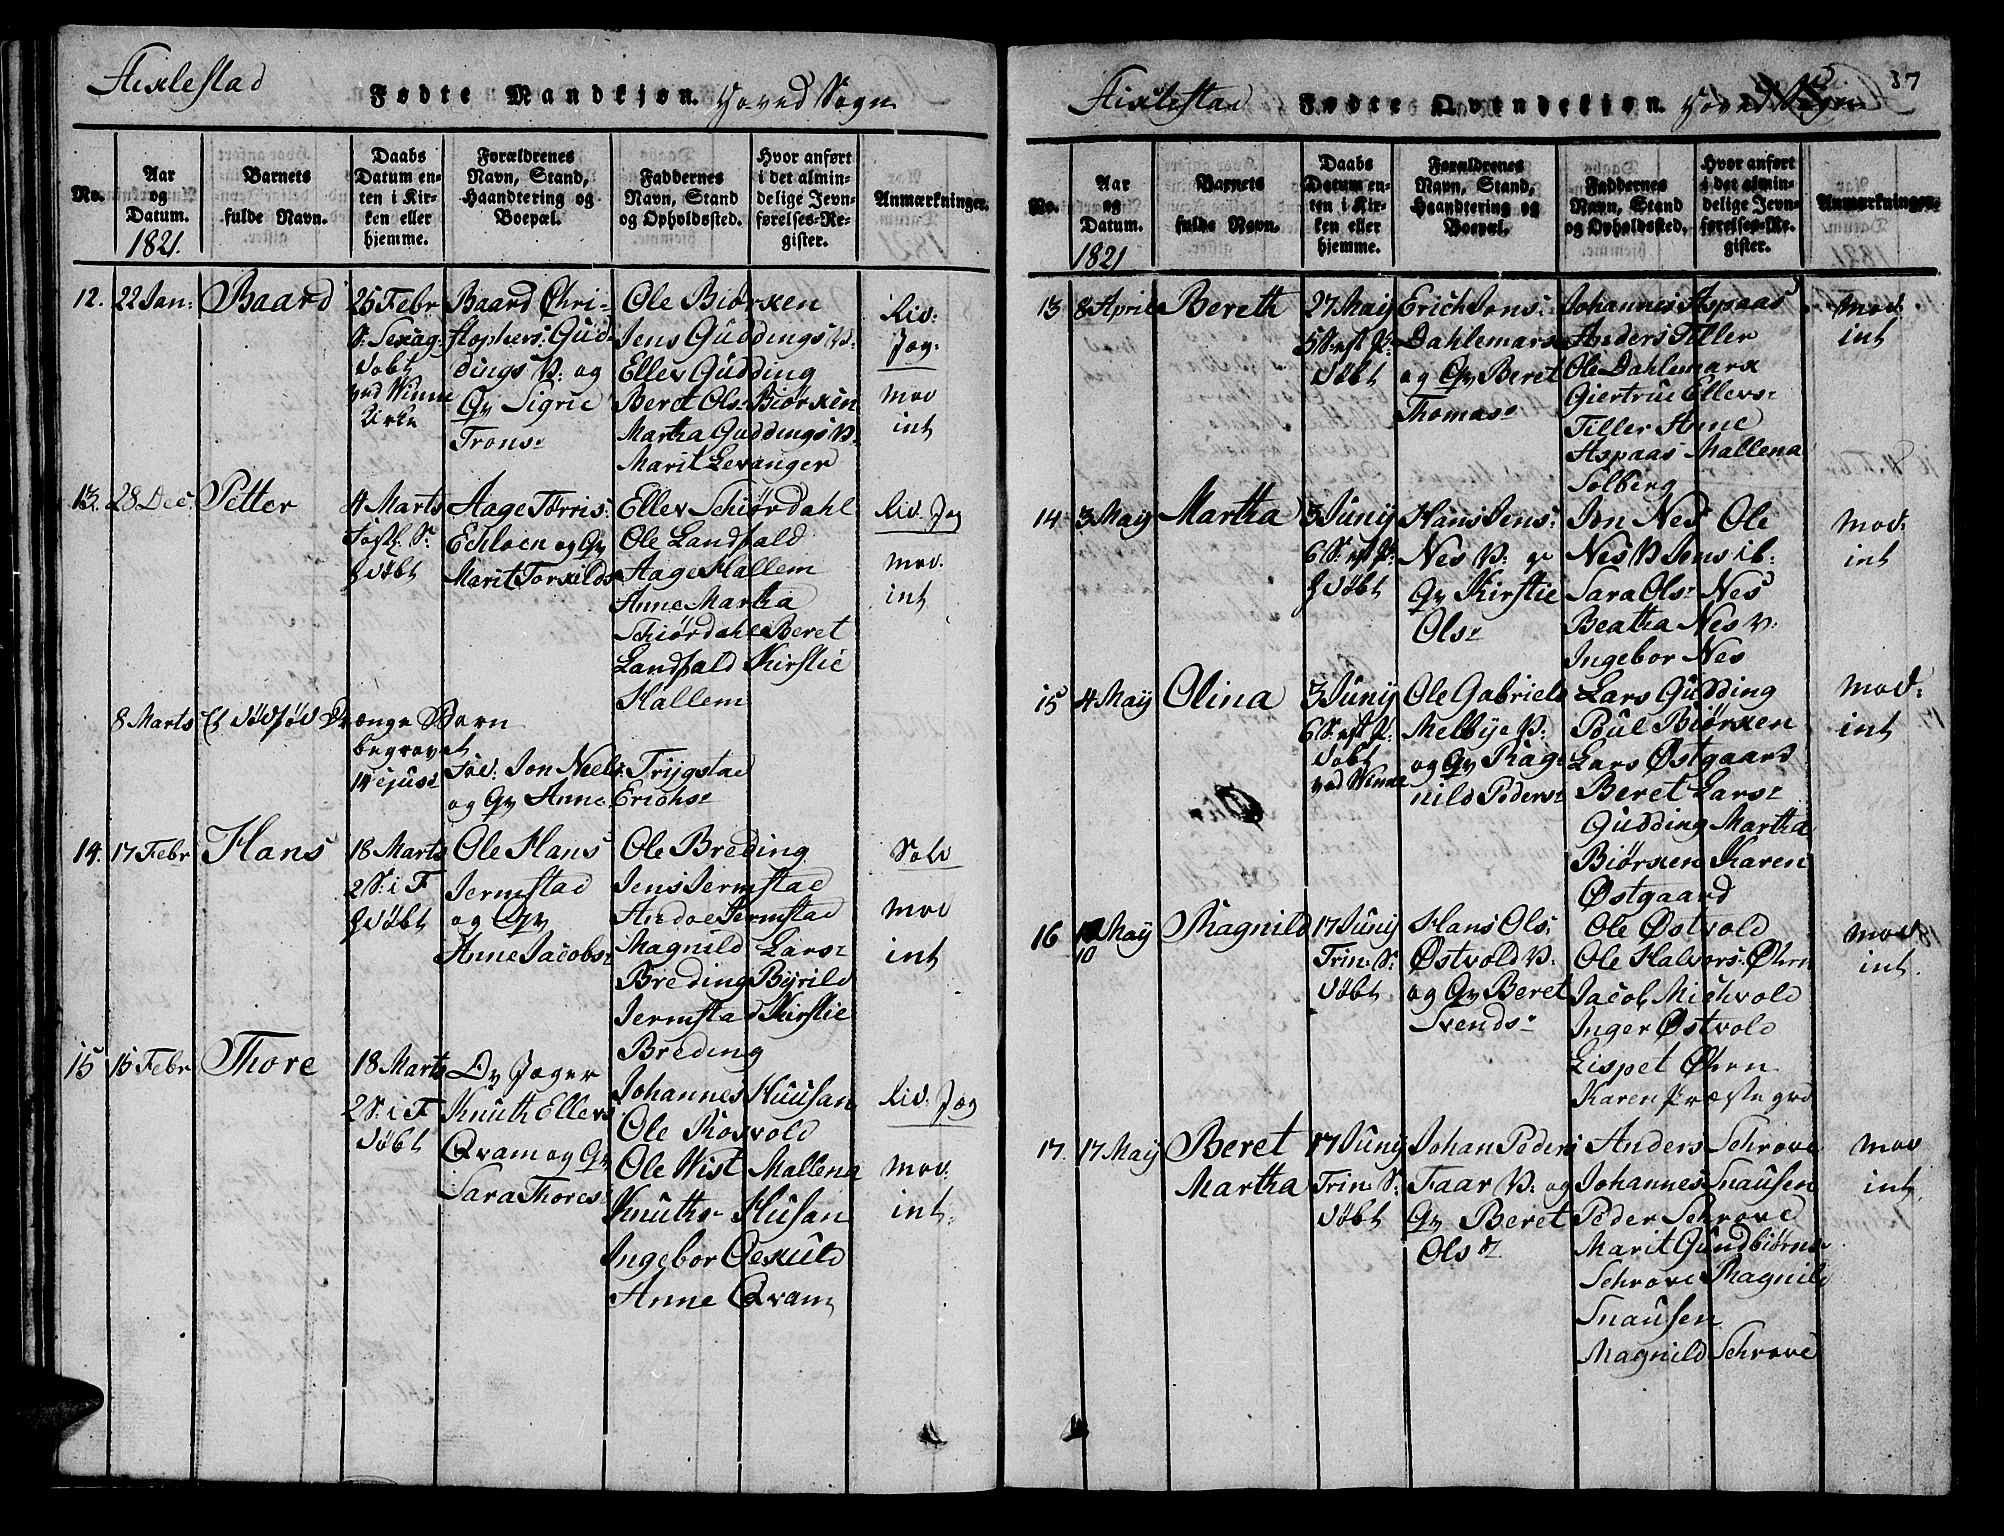 Stixlestad
Fødte Mandkjøn. Hoved Sogn
No.
Aar og Datum. 1821.
Barnets fulde Navn.
Daabs Datum enten i Kirken eller hjemme.
Forældrenes Navn, Stand, Haandtering og Boepæl.
Faddernes Navn, Stand og Opholdssted.
Hvor anført i det almindelige Jevnførelses-Register.
Anmærkninger.
12. 22 Jan: Baard
25 Febr
S. Sexag:
døbt
ved Winne
Kirke
Baard Chri-
stophers: Gud-
dings P: og
Qv Sigrie
Trons-
Ole Biörxen
Jens Guddings P:
Ellev Gudding
Beret Ols- Biörxen
Martha Guddings P:
Marit Levanger
Liv:
Jæg:
mod
int
13. 28 Dec: Petter
4 Marts
Fastl. S:
døbt
Aage Törris:
Echloen og Qv
Marit Torkilds-
Ellev Schiördahl
Ole Landfald
Aage Hallem
Anne Martha
Schiördahl Beret
Landfald Kirstie
Hallem
Liv. Jæg
mod.
int
8 Marts Et dødfød Drænge Barn
begravet
14 ejusd
Fod: Jon Neels: Trygstad
og Qv Anne Erichs-
14. 17 Febr Hans
18 Marts
2 S: i F
døbt
Ole Hans
Jermstad
og Qv
Anne Jacobs-
Ole Breding
Jens Jermstad
Andoe Jermstad
Magnild Lars-
Breding Byrild
Jermstad Kirstie
Breding
Sold
mod
int
15 15 Febr Thore
18 Marts
2 S: i F
døbt
Dv Jæger
Knuth Ellevs
Qvam og Qv
Sara Thores-
Johannes Huusan
Ole Rosvold
Ole Wist Mallena
Knuths- Husan
Ingebor Oexuld
Anne Qvam
Liv: Jæg
mod.
int.
37
Stixlestad
Fødte Qvindekjøn. Hoved Sogn
No.
Aar og Datum. 1821
Barnets fulde Navn.
Daabs Datum enten i Kirken eller hjemme.
Forældrenes Navn, Stand, Haandtering og Boepæl.
Faddernes Navn, Stand og Opholdssted.
Hvor anført i det almindelige Jevnførelses-Register.
Anmærkninger.
13 8 April Bereth
27 May
5 S: eft P:
døbt
Erich Jons:
Dahlemarx
og Qv Beret
Thomas-
Johannes Aspaas
Anders Tiller
Ole Dahlemarx
Giertrue Ellevs-
Tiller Anne
Aspaas Mallena
Solberg
mod
int
14 3 May Martha
3 Juny
6 S: eft P:
døbt
Hans Jens:
Nes P: og
Qv Kirstie
Ols-
Jon Nes Ole
Nes P Jens ib:
Sara Ols- Nes
Beatha Nes P:
Ingebor Nes
mod:
int
15 4 May Olina
3 Juny
6 S: eft P:
døbt
ved Winne
Ole Gabriels
Melbye P:
og Qv Rag-
nild Peders-
Lars Gudding
Poul Biörxen
Lars Østgaard
Beret Lars-
Gudding Martha
Biörxen Karen
Østgaard
mod:
int
16 10 May Ragnild
17 Juny
Trin: S:
døbt
Hans Ols:
Østvold P:
og Qv Beret
Svends-
Ole Østvold
Ole Halvors: Øhrn
Jacob Michvold
Inger Østvold
Lispet Øhrn
Karen Præstegrd
mod
int.
17. 17 May Beret
Martha
17 Juny
Trin: S:
døbt
Johan Peders
Faar P: og
Qv Beret
Ols-
Anders Schrove
Johannes Snausen
Peder Schrove
Marit Gundbiörns-
Schrove Ragnild
Snausen
Magnild Schrove
mod
int